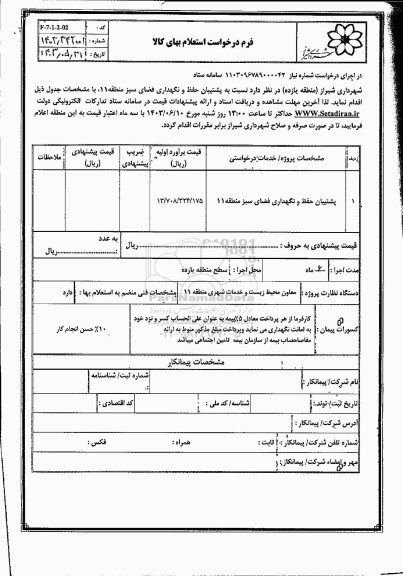 فرم درخواست استعلام بهای کالا
کد : F-7-1-2-02
شماره :
تاریخ : ۱۴۰۳,۰۵,۳۱
در اجرای درخواست شماره نیاز ۱۱۰۳۰۹۶۷۸۹۰۰۰۰۴۲ سامانه ستاد
شهرداری شیراز (منطقه یازده) در نظر دارد نسبت به پشتیبان حفظ و نگهداری فضای سبز منطقه۱۱، با مشخصات جدول ذیل
اقدام نماید. لذا آخرین مهلت مشاهده و دریافت اسناد و ارائه پیشنهادات قیمت در سامانه ستاد تدارکات الکترونیکی دولت
WWW.Setadiran.ir حداکثر تا ساعت ۱۳:۰۰ روز شنبه مورخ ۱۴۰۳/۰۶/۱۰ با سه ماه اعتبار قیمت به این منطقه اعلام
فرمایید، تا در صورت صرفه و صلاح شهرداری شیراز برابر مقررات اقدام گردد.
ردیف مشخصات پروژه/ خدمات درخواستی قیمت برآورد اولیه (ریال) ضریب پیشنهادی قیمت پیشنهادی (ریال) ملاحظات
۱ پشتیبان حفظ و نگهداری فضای سبز منطقه۱۱ ۱۲/۷۰۸/۳۳۴/۱۷۵
قیمت پیشنهادی به حروف : ریال به عدد : ریال
مدت اجرا : ماه محل اجرا : سطح منطقه یازده
دستگاه نظارت پروژه : معاون محیط زیست و خدمات شهری منطقه ۱۱ مشخصات فنی منضم به استعلام بها : دارد
کسورات پیمان : کارفرما از هر پرداخت معادل ۵٪بیمه به عنوان علی الحساب کسر و نزد خود
به امانت نگهداری می نماید وپرداخت مبلغ مذکور منوط به ارائه
مفاصاحساب بیمه از سازمان بیمه تامین اجتماعی میباشد
۱۰٪ حسن انجام کار
مشخصات پیمانکار
نام شرکت/ پیمانکار : شماره ثبت/ شناسنامه :
تاریخ ثبت/ تولد: شناسه/ کد ملی : کد اقتصادی :
آدرس شرکت/ پیمانکار :
شماره تلفن شرکت/ پیمانکار : ثابت : همراه : فکس :
مهر و امضاء شرکت/ پیمانکار:
ParsNamadData